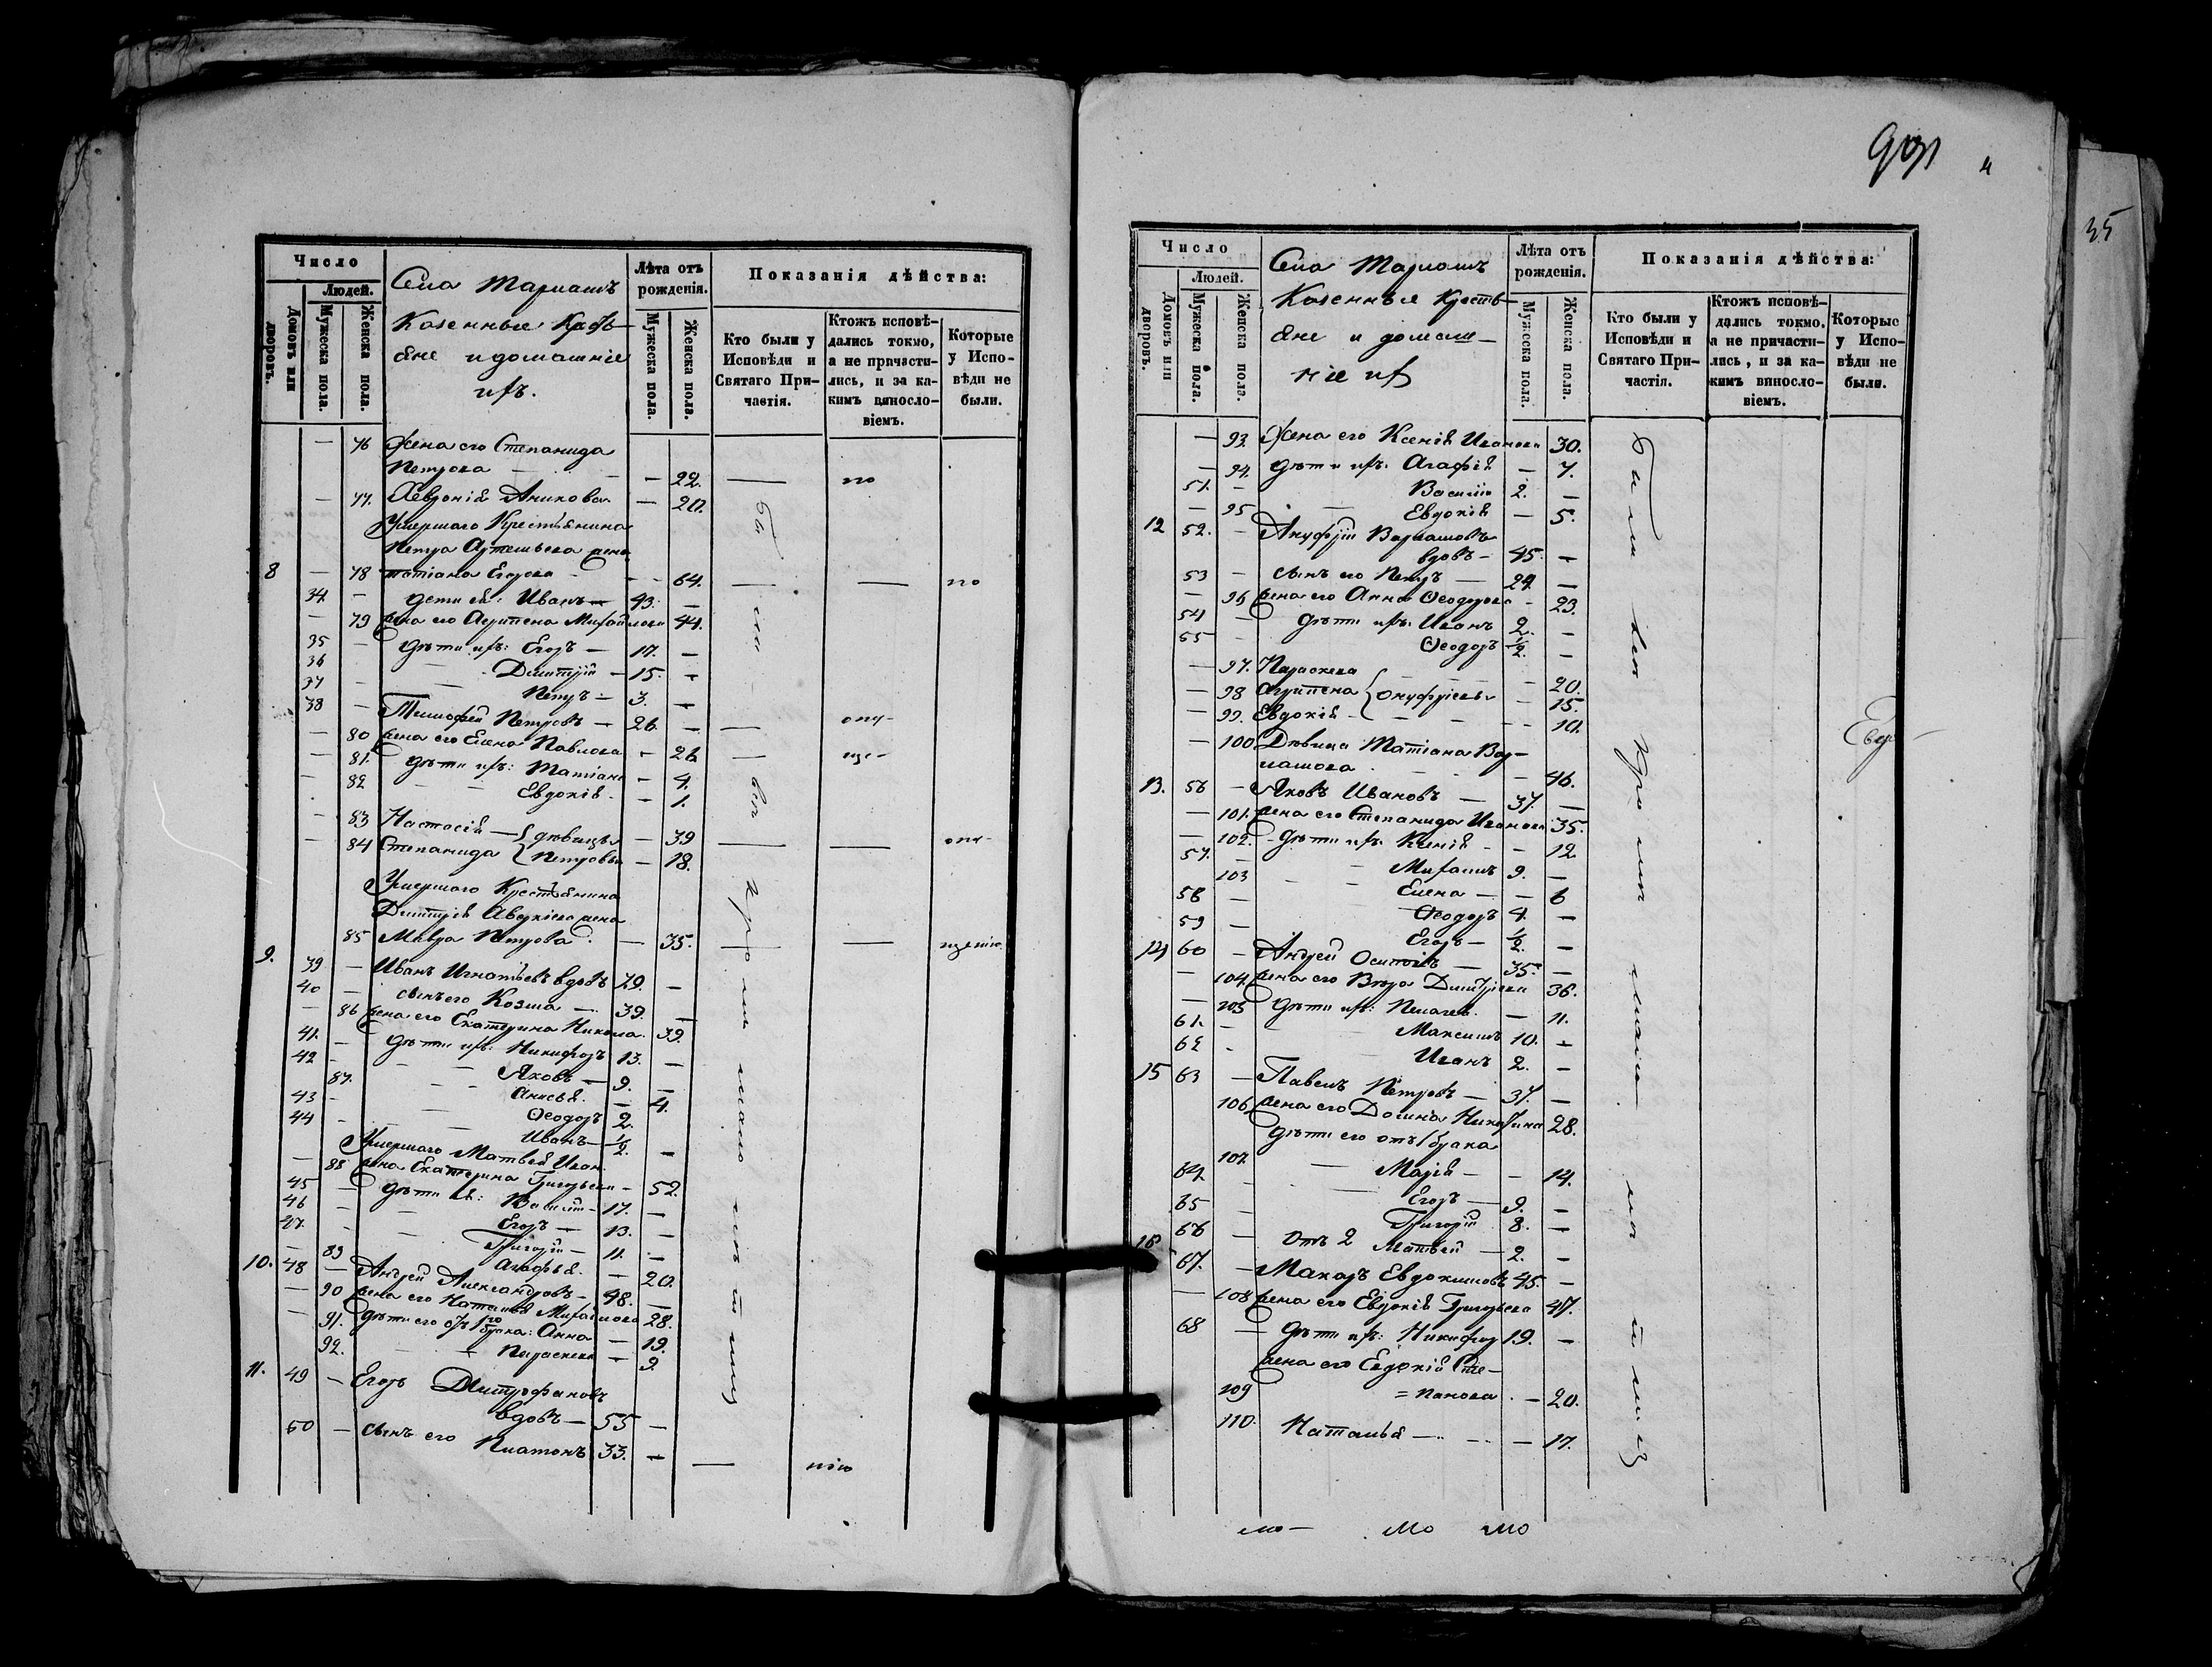 35
Число
Людей.
Домовъ или дворовъ.
Мужеска пола.
Женска пола.
Села Марпашъ
Казенные Крестъ-
яне и домашніе
ихъ.
Лѣта отъ рожденія.
Мужеска пола.
Женска пола.
Показанія дѣйства:
Кто были у Исповѣди и Святаго Причастія.
Ктожъ исповѣдались токмо, а не причастились, и за какимъ винословіемъ.
Которые у Исповѣди не были.
— 76 Жена его Степанида
Петрова — — 22. — по
— 77. Хевронія Аникова — 20.
Умершаго Крестьянина
Петра Артемьева жена
8 — 78 Татіана Егорова — 64. — — по
34 — дети ея: Иванъ — 43. —
— 79 жена его Агрипена Михайлова 44.
35 — дѣти ихъ: Егоръ — 17. —
36 — Димитрій — 15. —
37 — Петръ — 3. —
38 — Тимофей Петровъ — 26. — — опу-
— 80 жена его Елена Павлова — 26 — ще-
— 81. дѣти ихъ: Татіана — 4.
82 — Евдокія — 1.
— 83 Настасія — дѣвицы — 39
— 84 Степанида Петровы — 18. — — опу-
Умершаго Крестьянина
Димитрія Аверкіева жена
85 Мавра Петрова — 35. — — щенію
9. 39 — Иванъ Игнатьевъ вдовъ 79. —
40 — сынъ его Козма — 39. —
— 86 жена его Екатерина Никола. 39.
41. — дѣти ихъ: Никифоръ 13. —
42 — Яковъ — 9. —
87. Анисья — 4.
43 — Ѳеодоръ 2.
44 — Иванъ — 1/2. —
Умершаго Матвея Иван.
— 88 жена Екатерина Григорьева — 52.
45 — дѣти ея: Василій — 17. —
46 — Егоръ — 13. —
47. — Григорій — 11. —
— 89 Агафья — 20.
10. 48 — Андрей Александровъ — 48. —
— 90 жена его Наталія Михайлова 28.
— 91. дѣти его отъ 1го брака: Анна — 19.
92. — Параскева — 9.
11. 49 — Егоръ Димитрофановъ
вдовъ — 55 —
50 — сынъ его
Платонъ 33. — — нію
Число
Людей.
Домовъ или дворовъ.
Мужеска пола.
Женска пола.
Села Марпашъ
Казенные Кресть-
яне и домаш-
ніе их
Лѣта отъ рожденія.
Мужеска пола.
Женска пола.
Показанія дѣйства:
Кто были у Исповѣди и Святаго Причастія.
Ктожъ исповѣдались токмо, а не причастились, и за какимъ винословіемъ.
Которые у Исповѣди не были.
— 93. Жена его Ксенія Иванова 30.
— 94. дѣти ихъ: Агафія — 7.
51. — Василій 2. —
— 95 Евдокія — 5.
12 52. — Ануфрій Варламовъ
вдовъ — 45. —
53 — сынъ его Петръ — 24. —
— 96 жена его Анна Ѳеодорова — 23.
54 — дѣти ихъ: Иванъ 2. —
55 — Ѳеодоръ 1/2. —
— 97. Параскева — 20.
— 98 Агрипена Онуфріевы — 15.
— 99. Евдокія — 10.
— 100 Дѣвица Татіана Вар-
ламова — 46.
13. 56 — Яковъ Ивановъ — 37. —
— 101. жена его Степанида Иванова 35.
— 102. дѣти ихъ: Ксенія — 12
57. — Михаилъ 9. —
103 Елена — 6
58 — Ѳеодоръ 4. —
59 — Егоръ — 1/2. —
14 60 — Андрей Осиповъ — 35. —
— 104. жена его Вѣра Димитріева 36.
— 105 дѣти ихъ: Пелагея — 11.
61. — Максимъ 10. —
62 — Иванъ 2. —
15 63 — Павелъ Петровъ — 37. —
106. жена его Домна Никитина 28.
дѣти его отъ 1 брака
107. Марія — 14.
64 — Егоръ — 9. —
65 — Григорій 8. —
66 — отъ 2 Матвей — 2. —
16 67. — Макаръ Евдокимовъ 45. —
— 108 жена его Евдокія Григорьева 47.
68 — дѣти ихъ: Никифоръ 19. —
жена его Евдокія Сте-
109 = панова — 20.
110. Наталья — 17.